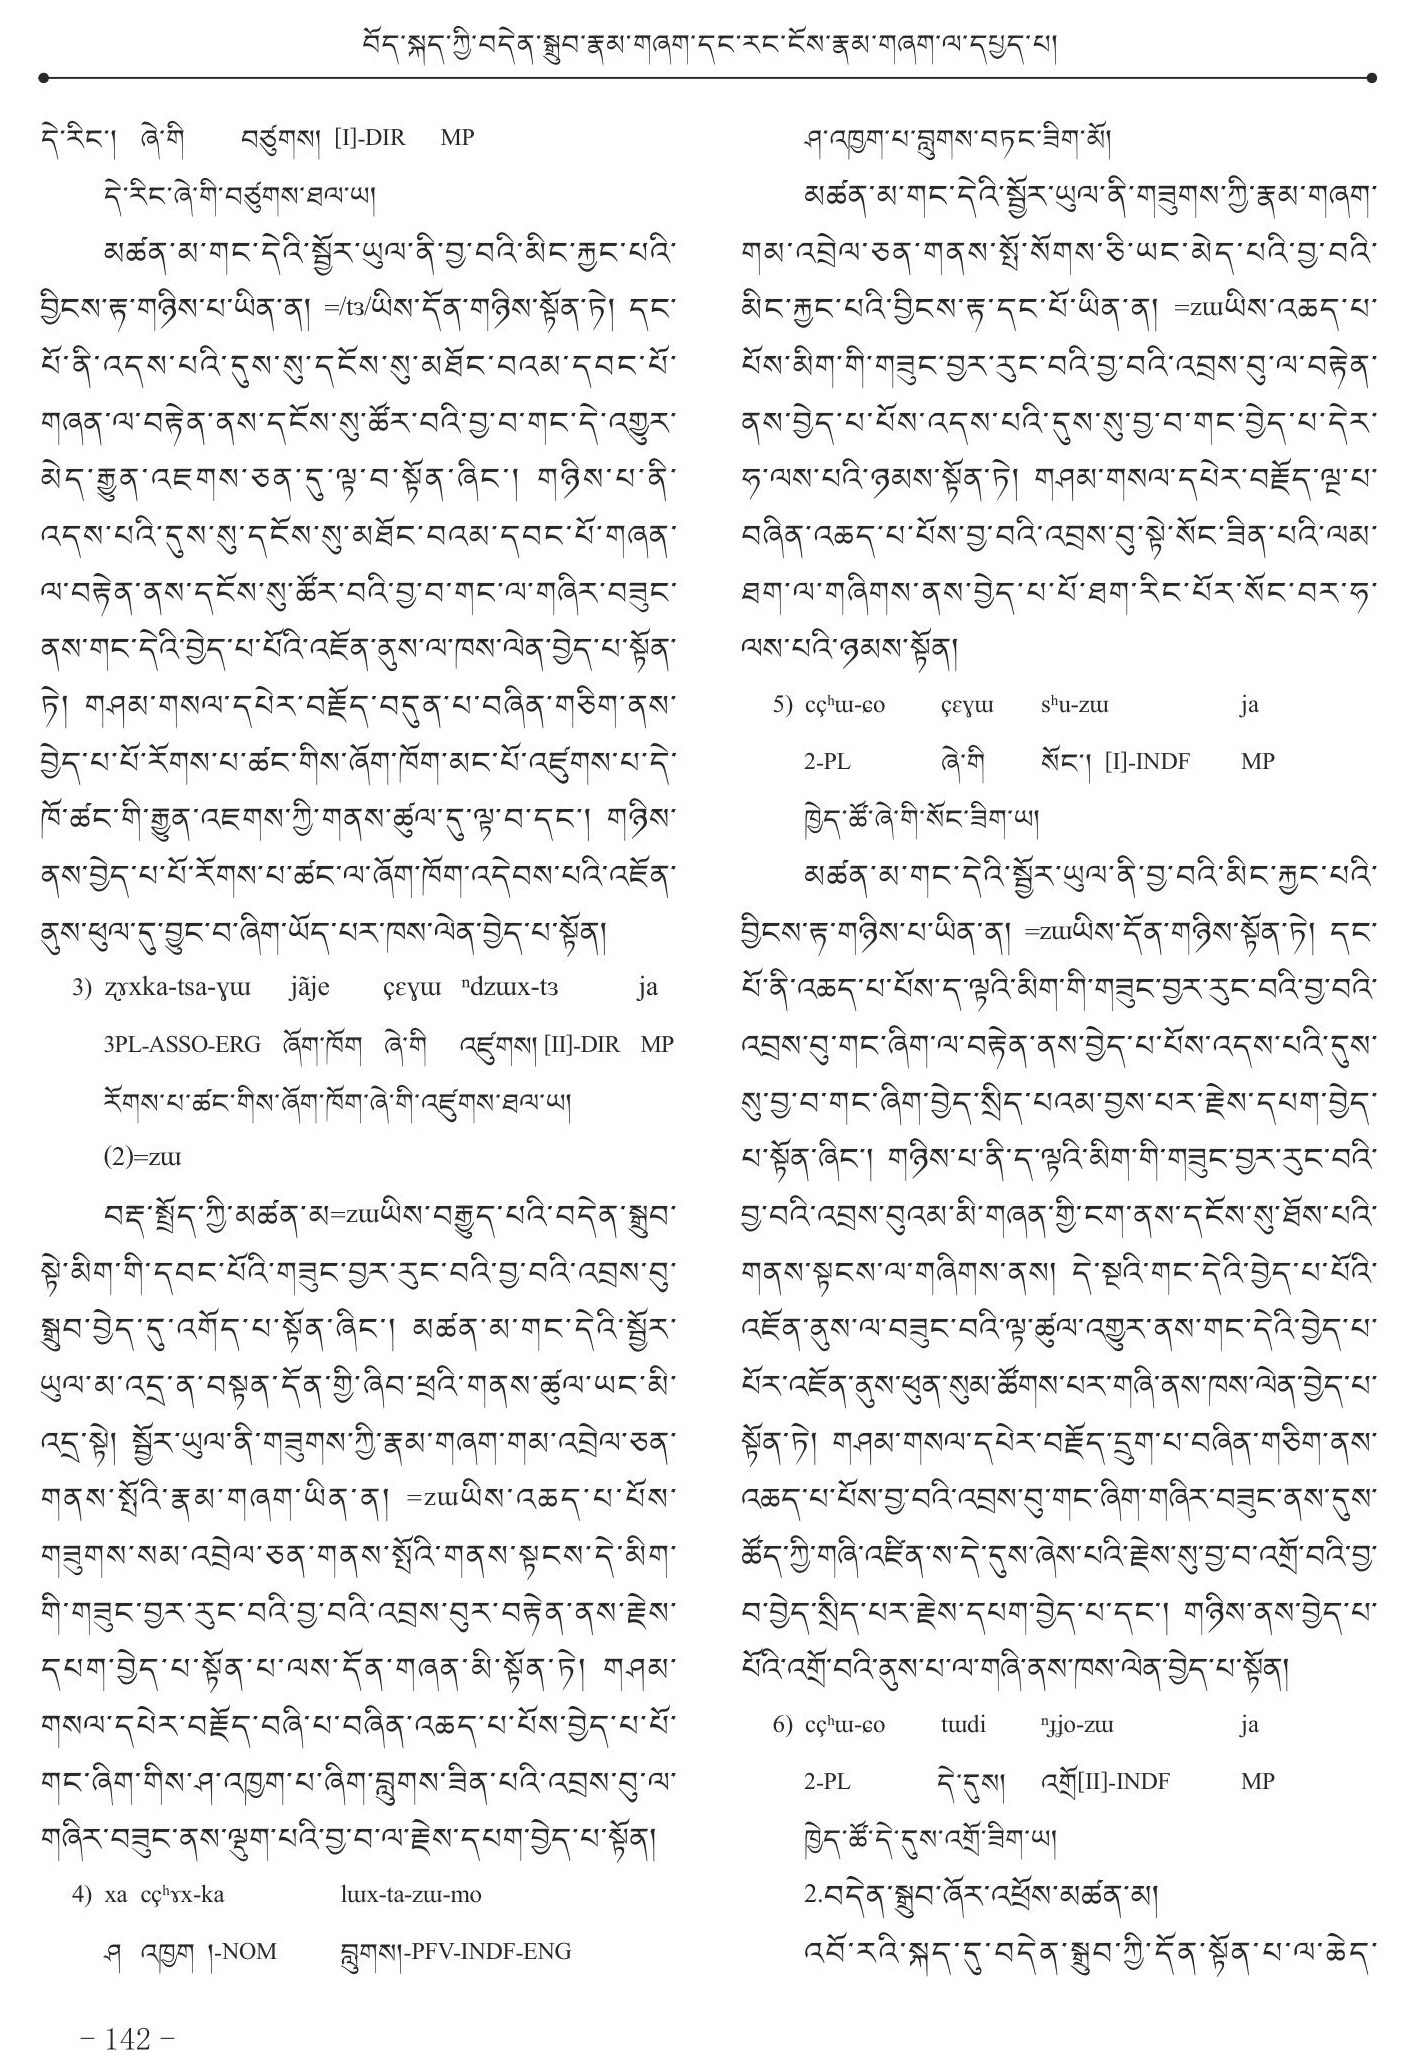 བོད་སྐད་ཀྱི་བདེན་སྒྲུབ་རྣམ་གཞག་དང་རང་ངོས་རྣམ་གཞག་ལ་དཔྱད་པ།
དེ་རིང་། ཞེ་གི བཙུགས། [I]-DIR MP
དེ་རིང་ཞེ་གི་བཙུགས་ཐལ་ཡ།
མཚན་མ་གང་དེའི་སྦྱོར་ཡུལ་ནི་བྱ་བའི་མིང་རྐྱང་པའི་
བྱིངས་རྟ་གཉིས་པ་ཡིན་ན། =/tɜ/ཡིས་དོན་གཉིས་སྟོན་ཏེ། དང་
པོ་ནི་འདས་པའི་དུས་སུ་དངོས་སུ་མཐོང་བའམ་དབང་པོ་
གཞན་ལ་བརྟེན་ནས་དངོས་སུ་ཚོར་བའི་བྱ་བ་གང་དེ་འགྱུར་
མེད་རྒྱུན་འཇགས་ཅན་དུ་ལྟ་བ་སྟོན་ཞིང་། གཉིས་པ་ནི་
འདས་པའི་དུས་སུ་དངོས་སུ་མཐོང་བའམ་དབང་པོ་གཞན་
ལ་བརྟེན་ནས་དངོས་སུ་ཚོར་བའི་བྱ་བ་གང་ལ་གཞིར་བཟུང་
ནས་གང་དེའི་བྱེད་པ་པོའི་འཇོན་ནུས་ལ་ཁས་ལེན་བྱེད་པ་སྟོན་
ཏེ། གཤམ་གསལ་དཔེར་བརྗོད་བདུན་པ་བཞིན་གཅིག་ནས་
བྱེད་པ་པོ་རོགས་པ་ཚང་གིས་ཞོག་ཁོག་མང་པོ་འཛུགས་པ་དེ་
ཁོ་ཚང་གི་རྒྱུན་འཇགས་ཀྱི་གནས་ཚུལ་དུ་ལྟ་བ་དང་། གཉིས་
ནས་བྱེད་པ་པོ་རོགས་པ་ཚང་ལ་ཞོག་ཁོག་འདེབས་པའི་འཇོན་
ནུས་ཕུལ་དུ་བྱུང་བ་ཞིག་ཡོད་པར་ཁས་ལེན་བྱེད་པ་སྟོན།
3) ʐɤxka-tsa-ɣɯ jãje çɛɣɯ ⁿdzɯx-tɜ ja
3PL-ASSO-ERG ཞོག་ཁོག ཞེ་གི འཛུགས། [II]-DIR MP
རོགས་པ་ཚང་གིས་ཞོག་ཁོག་ཞེ་གི་འཛུགས་ཐལ་ཡ།
(2)=zɯ
བརྡ་སྤྲོད་ཀྱི་མཚན་མ=zɯཡིས་བརྒྱུད་པའི་བདེན་སྒྲུབ་
སྟེ་མིག་གི་དབང་པོའི་གཟུང་བྱར་རུང་བའི་བྱ་བའི་འབྲས་བུ་
སྒྲུབ་བྱེད་དུ་འགོད་པ་སྟོན་ཞིང་། མཚན་མ་གང་དེའི་སྦྱོར་
ཡུལ་མ་འདྲ་ན་བསྟན་དོན་གྱི་ཞིབ་ཕྲའི་གནས་ཚུལ་ཡང་མི་
འདྲ་སྟེ། སྦྱོར་ཡུལ་ནི་གཟུགས་ཀྱི་རྣམ་གཞག་གམ་འབྲེལ་ཅན་
གནས་སྤོའི་རྣམ་གཞག་ཡིན་ན། =zɯཡིས་འཆད་པ་པོས་
གཟུགས་སམ་འབྲེལ་ཅན་གནས་སྤོའི་གནས་སྟངས་དེ་མིག་
གི་གཟུང་བྱར་རུང་བའི་བྱ་བའི་འབྲས་བུར་བརྟེན་ནས་རྗེས་
དཔག་བྱེད་པ་སྟོན་པ་ལས་དོན་གཞན་མི་སྟོན་ཏེ། གཤམ་
གསལ་དཔེར་བརྗོད་བཞི་པ་བཞིན་འཆད་པ་པོས་བྱེད་པ་པོ་
གང་ཞིག་གིས་ཤ་འཁྱག་པ་ཞིག་བླུགས་ཟིན་པའི་འབྲས་བུ་ལ་
གཞིར་བཟུང་ནས་ལྡུག་པའི་བྱ་བ་ལ་རྗེས་དཔག་བྱེད་པ་སྟོན།
4) xa cçʰɤx-ka lɯx-ta-zɯ-mo
ཤ འཁྱག །-NOM བླུགས།-PFV-INDF-ENG
ཤ་འཁྱག་པ་བླུགས་བཏང་ཟིག་མོ།
མཚན་མ་གང་དེའི་སྦྱོར་ཡུལ་ནི་གཟུགས་ཀྱི་རྣམ་གཞག་
གམ་འབྲེལ་ཅན་གནས་སྤོ་སོགས་ཅི་ཡང་མེད་པའི་བྱ་བའི་
མིང་རྐྱང་པའི་བྱིངས་རྟ་དང་པོ་ཡིན་ན། =zɯཡིས་འཆད་པ་
པོས་མིག་གི་གཟུང་བྱར་རུང་བའི་བྱ་བའི་འབྲས་བུ་ལ་བརྟེན་
ནས་བྱེད་པ་པོས་འདས་པའི་དུས་སུ་བྱ་བ་གང་བྱེད་པ་དེར་
ཧ་ལས་པའི་ཉམས་སྟོན་ཏེ། གཤམ་གསལ་དཔེར་བརྗོད་ལྔ་པ་
བཞིན་འཆད་པ་པོས་བྱ་བའི་འབྲས་བུ་སྟེ་སོང་ཟིན་པའི་ལམ་
ཐག་ལ་གཞིགས་ནས་བྱེད་པ་པོ་ཐག་རིང་པོར་སོང་བར་ཧ་
ལས་པའི་ཉམས་སྟོན།
5) cçʰɯ-ɕo çɛɣɯ sʰu-zɯ ja
2-PL ཞེ་གི སོང་། [I]-INDF MP
ཁྱེད་ཚོ་ཞེ་གི་སོང་ཟིག་ཡ།
མཚན་མ་གང་དེའི་སྦྱོར་ཡུལ་ནི་བྱ་བའི་མིང་རྐྱང་པའི་
བྱིངས་རྟ་གཉིས་པ་ཡིན་ན། =zɯཡིས་དོན་གཉིས་སྟོན་ཏེ། དང་
པོ་ནི་འཆད་པ་པོས་ད་ལྟའི་མིག་གི་གཟུང་བྱར་རུང་བའི་བྱ་བའི་
འབྲས་བུ་གང་ཞིག་ལ་བརྟེན་ནས་བྱེད་པ་པོས་འདས་པའི་དུས་
སུ་བྱ་བ་གང་ཞིག་བྱེད་སྲིད་པའམ་བྱས་པར་རྗེས་དཔག་བྱེད་
པ་སྟོན་ཞིང་། གཉིས་པ་ནི་ད་ལྟའི་མིག་གི་གཟུང་བྱར་རུང་བའི་
བྱ་བའི་འབྲས་བུའམ་མི་གཞན་གྱི་ངག་ནས་དངོས་སུ་ཐོས་པའི་
གནས་སྟངས་ལ་གཞིགས་ནས། དེ་སྔའི་གང་དེའི་བྱེད་པ་པོའི་
འཇོན་ནུས་ལ་བཟུང་བའི་ལྟ་ཚུལ་འགྱུར་ནས་གང་དེའི་བྱེད་པ་
པོར་འཇོན་ནུས་ཕུན་སུམ་ཚོགས་པར་གཞི་ནས་ཁས་ལེན་བྱེད་པ་
སྟོན་ཏེ། གཤམ་གསལ་དཔེར་བརྗོད་དྲུག་པ་བཞིན་གཅིག་ནས་
འཆད་པ་པོས་བྱ་བའི་འབྲས་བུ་གང་ཞིག་གཞིར་བཟུང་ནས་དུས་
ཚོད་ཀྱི་གཞི་འཛིན་ས་དེ་དུས་ཞེས་པའི་རྗེས་སུ་བྱ་བ་འགྲོ་བའི་བྱ་
བ་བྱེད་སྲིད་པར་རྗེས་དཔག་བྱེད་པ་དང་། གཉིས་ནས་བྱེད་པ་
པོའི་འགྲོ་བའི་ནུས་པ་ལ་གཞི་ནས་ཁས་ལེན་བྱེད་པ་སྟོན།
6) cçʰɯ-ɕo tɯdi ⁿɟjo-zɯ ja
2-PL དེ་དུས། འགྲོ[II]-INDF MP
ཁྱེད་ཚོ་དེ་དུས་འགྲོ་ཟིག་ཡ།
2.བདེན་སྒྲུབ་ཞོར་འཕྲོས་མཚན་མ།
འབོ་རའི་སྐད་དུ་བདེན་སྒྲུབ་ཀྱི་དོན་སྟོན་པ་ལ་ཆེད་
– 142 –